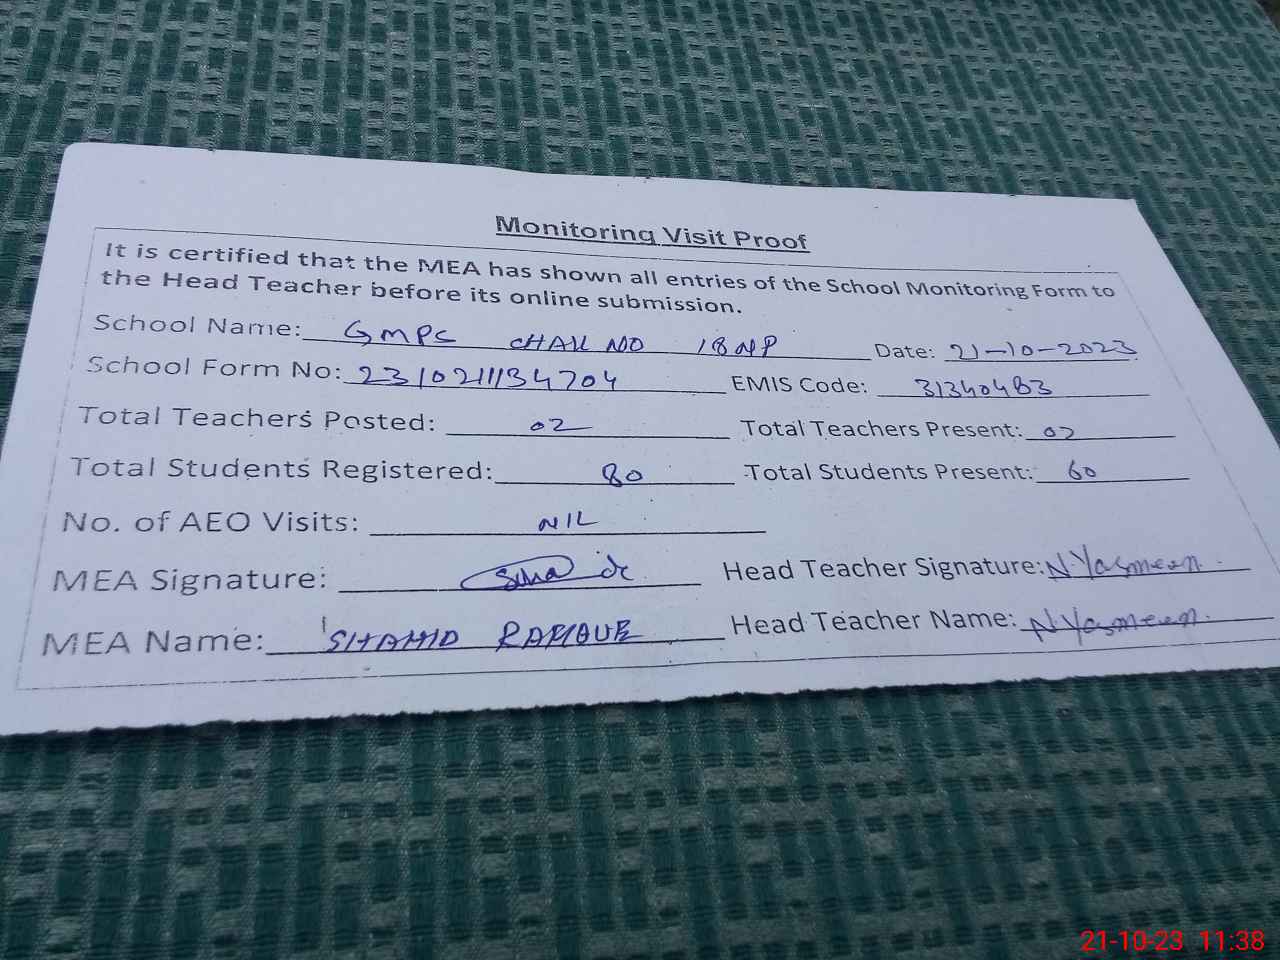 Monitoring Visit Proof
It is certified that the MEA has shown all entries of the School Monitoring Form to
the Head Teacher before its online submission.
School Name: GMPS CHAK NO 18NP Date: 21-10-2023
School Form No: 231021134704 EMIS Code: 31340483
Total Teachers Posted: 02 Total Teachers Present: 02
Total Students Registered: 80 Total Students Present: 60
No. of AEO Visits: NIL
MEA Signature: Head Teacher Signature: N.Yasmeen.
MEA Name: SHAHID RAFIQUE Head Teacher Name: N.Yasmeen.
21-10-23 11:38